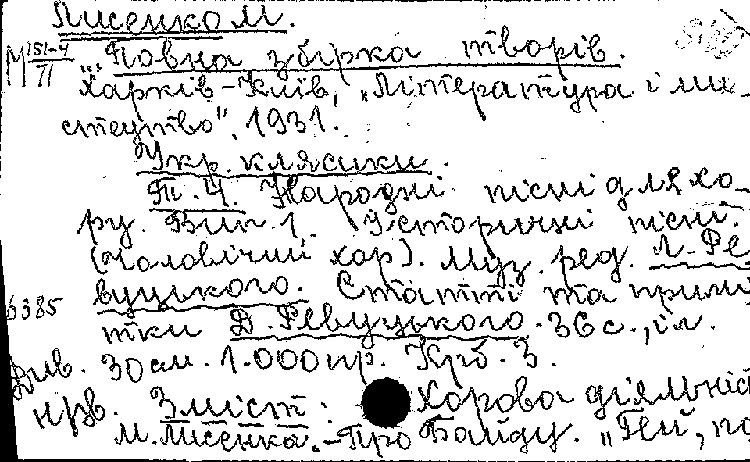 Лисенко М.
М 151-4/П „Повна збірка творів.
Харків-Київ, „Література і ми-
стецтво", 1931.
Укр. клясики.
Т. 4. Народні пісні для хо-
ру. Вип. 1. Історичні пісні.
(чоловічий хор). Муз. ред. Л. Ре
вуцького. Статті та примі
6385
тки Д. Ревуцького. 36 с., іл.
Див. 30 см. 1.000 пр. Крб. 3.
нрв. Зміст: Хорова діяльніс
М. Лисенка. – Про Байду. „Гей, по